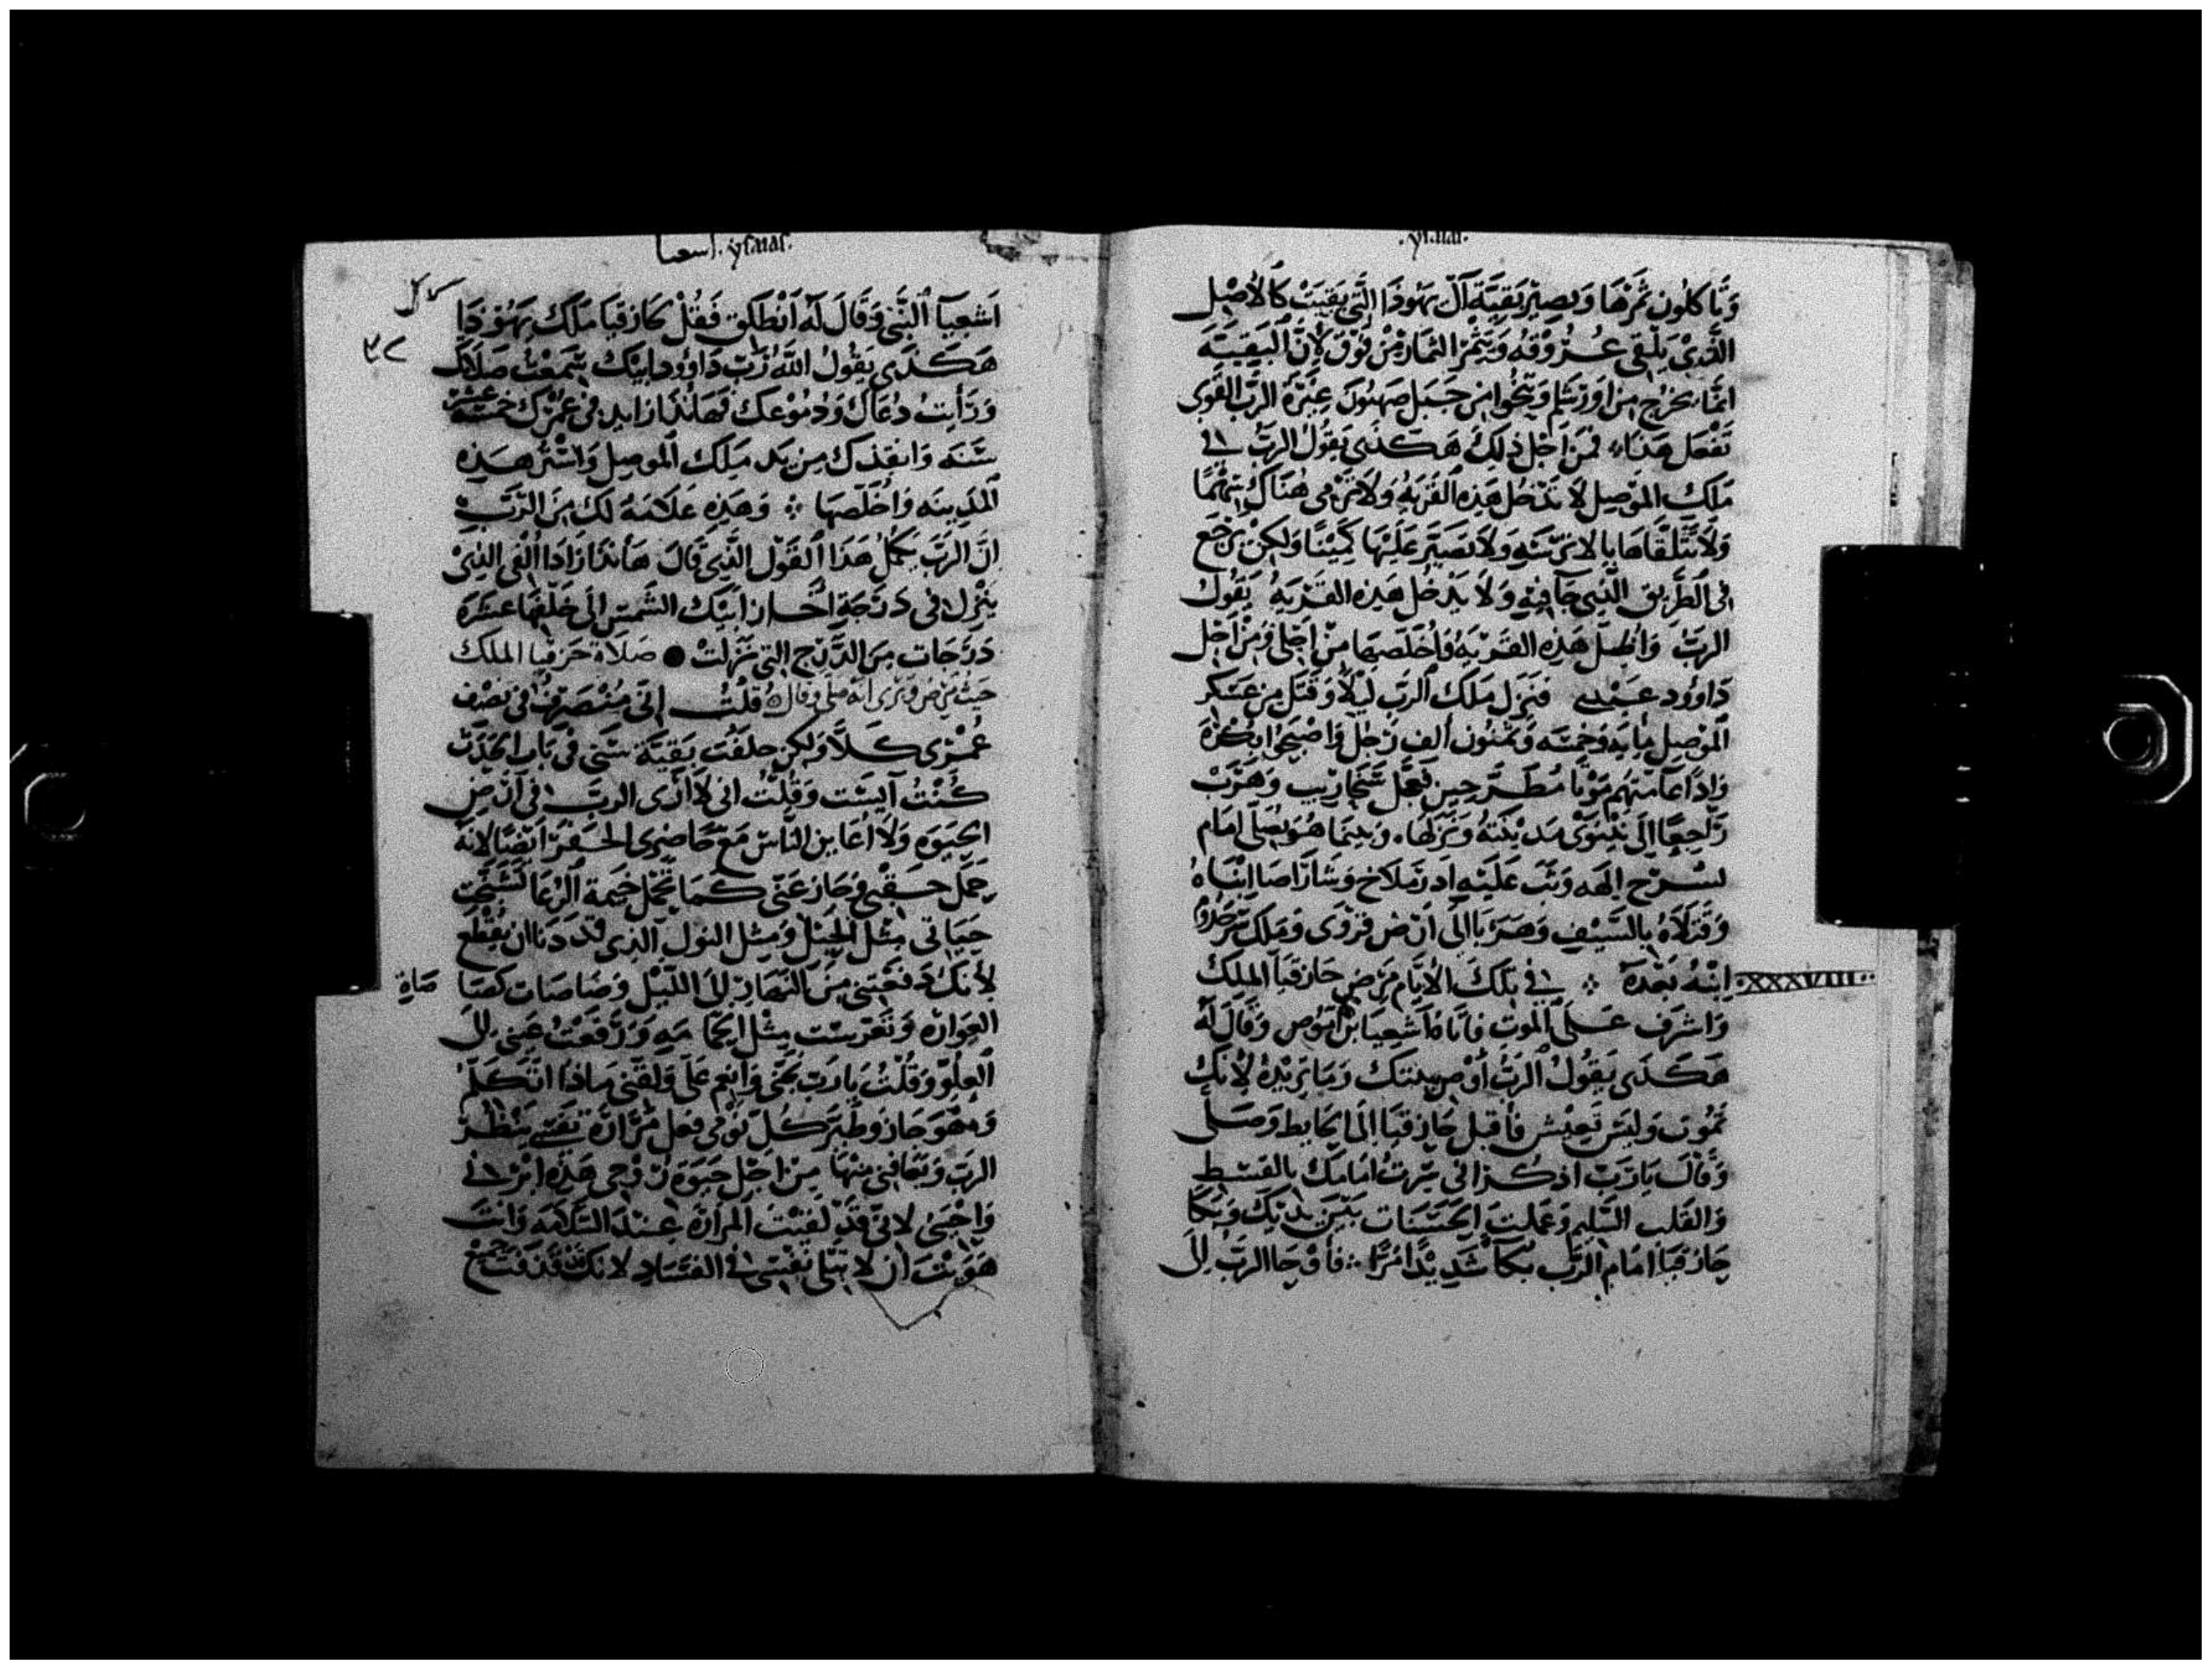 .ysaias.
وَتَاكلُون ثَمَرْهَا وَيصِيْر بَقِيَّة آلْ يَهُوذَا الَّتِي بَقِيَتْ كَالأَصْل
الَّذِيْ يُلْقِى عُرُوقُه وَيُثْمِرُ الثمَار مِنْ فَوْق لأَنَّ البَقِيَّة
انمَّا تخرُج مِن اُوْرَشَلِم وَيَنْجُوا مِن جَبَل صَهْيُونَ غِيْرَة الرَّبّ القَوِى
تَفْعَل هَذا فمِن اَجْل ذلِكَ هَكَذَى يَقُولُ الرَبُّ في
مَلِك المَوْصِل لاَ يَدْخُل هَذِه القَرْيَة وَلاَ يَرْمى هُنَاكَ سَهْمًا
وَلاَ يَتَلَقَّاهَا بِالاَتْرِسَةِ وَلاَ يصَيّر عَلَيْهَا كَمِيْنًا وَلَكِنْ يَرْجِع
فى الطَّرِيق الَّذِي جَا فِيْهِ وَلاَ يَدْخُل هَذِه القَرْيَة يَقُول
الربُّ وَاُظِلُّ هَذِه القَرْيَة وَاُخَلّصهَا مِنْ اَجْلِى وَمِنْ اَجْل
دَاوُود عَبْدِي فنَزَل مَلَك الرَبّ ليْلاً وَقَتَل مِن عَسْكَر
المَوْصِل مِايَه وَخمسَه وَثمنُون أَلف رَجُل وَاصْبَحُوا بُكْرَة
وَاِذَا عَامّتهُم مَوْتَا مُطَرَّحِين فَعَجل سَنْحَارِيب وَهَرَبْ
رَاجِعًا إِلَى نِيْنَوَىْ مَديْنَتهُ وَنزَلهَا. وَبينمَا هُوَ يُصَلّى اَمَام
نسْرَح إِلَهه وَثَب عَلَيْهِ اَدرَملاخ وَسَارَاصَا ابْنَاهُ
وَقَتَلاَهُ بِالسَّيْفِ وَهَرَبَا إِلَى اَرْض قرْدَى وَمَلك سَرْحَدُوم
اِبْنُهُ بَعْدَهُ ⁘ في تِلْكَ الأَيَّام مَرَض حَازقيَا المَلِكْ
.XXXVIII.
وَاشرَف عَلَى المَوْت فاَتَاهُ اَشعِيَا بن اَمُوْص وَقَالَ لَهُ
هَكَذَى يَقُولُ الرَبُّ أَوْص بَيتَك وَمَا تُرِيْدُهُ لأَنّكَ
تَمُوْت وَليْسَ تَعِيْش فأَقبل حَازقيَا إِلَى الحَايط وَصَلى
وَقَالَ يَا رَبّ اذكُرْ اني سرْتُ اَمَامَك بِالقسْط
وَالقَلب السَّلِيْم وَعَملتَ الحَسَنَات بَيْن يَدَيْك وَبَكَا
حَازقيَا اَمَام الرَبّ بُكآ شَديْدًا مُرًّا ⁘ فأَوْحَا الربّ إِلَى
اسعيا .ysaias.
اَشعِيَآ النَّبِّى وَقَالَ لَه اَنْطَلق فَقُلْ لحَازقيَا مَلَك يَهُوْذَا
هَكَذَى يَقُولُ اللَّه رَبّ دَاوُود اَبِيْكَ سَمِعْتُ صَلاَتَك
وَرَأَيتُ دُعَاكَ وَدُمُوْعكَ فهَانَذَا زَايد فى عُمْرك خمسَة عشَر
سَنَه وَانقِذكَ مِن يَد مَلِك المَوصِل وَاسْتر هَذِه
المَدِينَه وَاُخَلّصهَا ⁘ وَهَذِه عَلاَمَةٌ لكَ مِنَ الرَّبّ
اِنَّ الرَبّ يُكَمّلُ هَذَا القَوْل الَّذِي قَالَ هَأَنذَا رَادّ الْفَي الذِيْ
يَنْزِل فى دَرَجَةِ اَحَاز اَبِيْك الشَّمس إِلَى خَلْفهَا عَشرَه
دَرَجَات مِنَ الدَّرَج التي نَزَلَتْ ● صَلاَة حَزقيا الملك
حَيْثُ مَرِضَ وَبَرى انه صَلّى وقالَ قُلْتُ اِنّى مُنْصَرفٌ فى نصْف
عُمْرى كَلاَّ وَلكِن خلفْت بَقيَّة سِنّى فى بَاب الجَدَث
كُنْتُ آيسْت وَقُلْتُ انى لاَ اَرَى الربّ فى اَرْض
الحَيَوة وَلاَ اُعَاين النَّاسْ مَعَ حَاضِرى الحفْر اَيْضًا لانّه
حَمَل حسَقى وَجَاز عَنّى كَمَا تُحْمَل خَيمة الرُعَا تَشَنَّجَتْ
حَيَاتى مِثْل الحَبْل وَمِثل النول الذِى قَد دَنَا ان يُقْطَع
لأَنكَ دَفَعْتَنى مِنَ النَّهَار إِلَى اللَّيْل
مِثْل الحَمَامَهِ وَرَفَعْتُ عَينى إِلَى
العلُوّ وَقُلْتُ يا رَبّ نجّنى وَانعِم عَلَى مَاذَا اتكَلَّمْ
الرَبّ مِن اجْل حَيَوة رُوْحى هَذِه
وَاحْيَنى لاَنّى قَدْ لَقيْتُ المَرَارَة عِنْدَ السَّلاَمَه وَانتَ
هَوَيْتَ ان لاَ تبْلَى نَفْسِى فى الفسَاد لانكَ قَذَفْت جَمِيْع